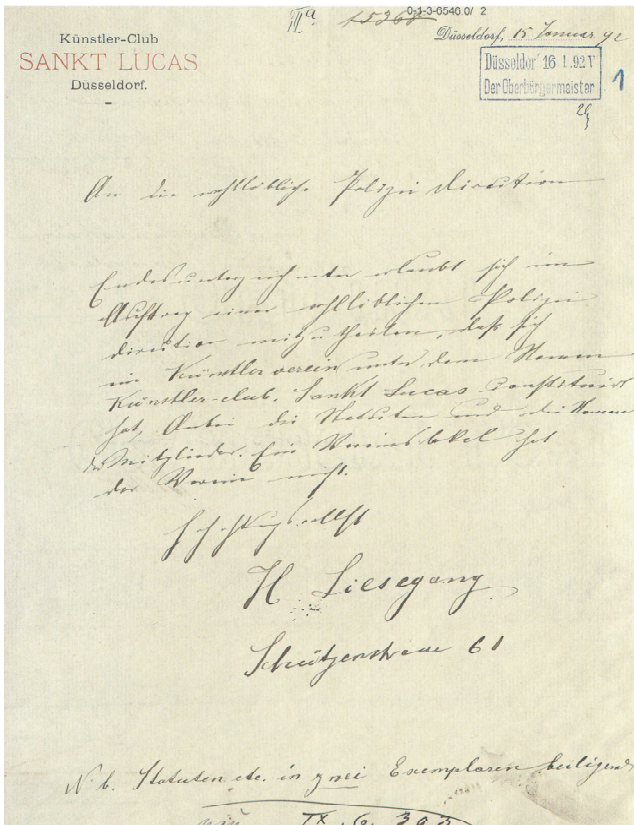 III a 15368 0-1-3-6540.0/ 2
Künstler-Club
SANKT LUCAS
Düsseldorf.
Düsseldorf, 15 Januar 92
Düsseldor 16 1.92 V
Der Oberbürgermeister
1
An die wohllöbliche Polizei Direction
Endesunterzeichneter erlaubt sich im
Auftrag einer wohllöblichen Polizei
direction mitzutheilen, daß sich
ein Künstlerverein unter dem Namen
Künstler-club, Sankt Lucas constituirt
hat, Anbei die Statuten und die Namen
der Mitglieder. Ein Vereinslokal hat
der Verein nicht.
Hochachtungsvollst
H Liesegang
Schützenstrasse 61
N.b. Statuten etc. in zwei Exemplaren beiligend
IX. 6.